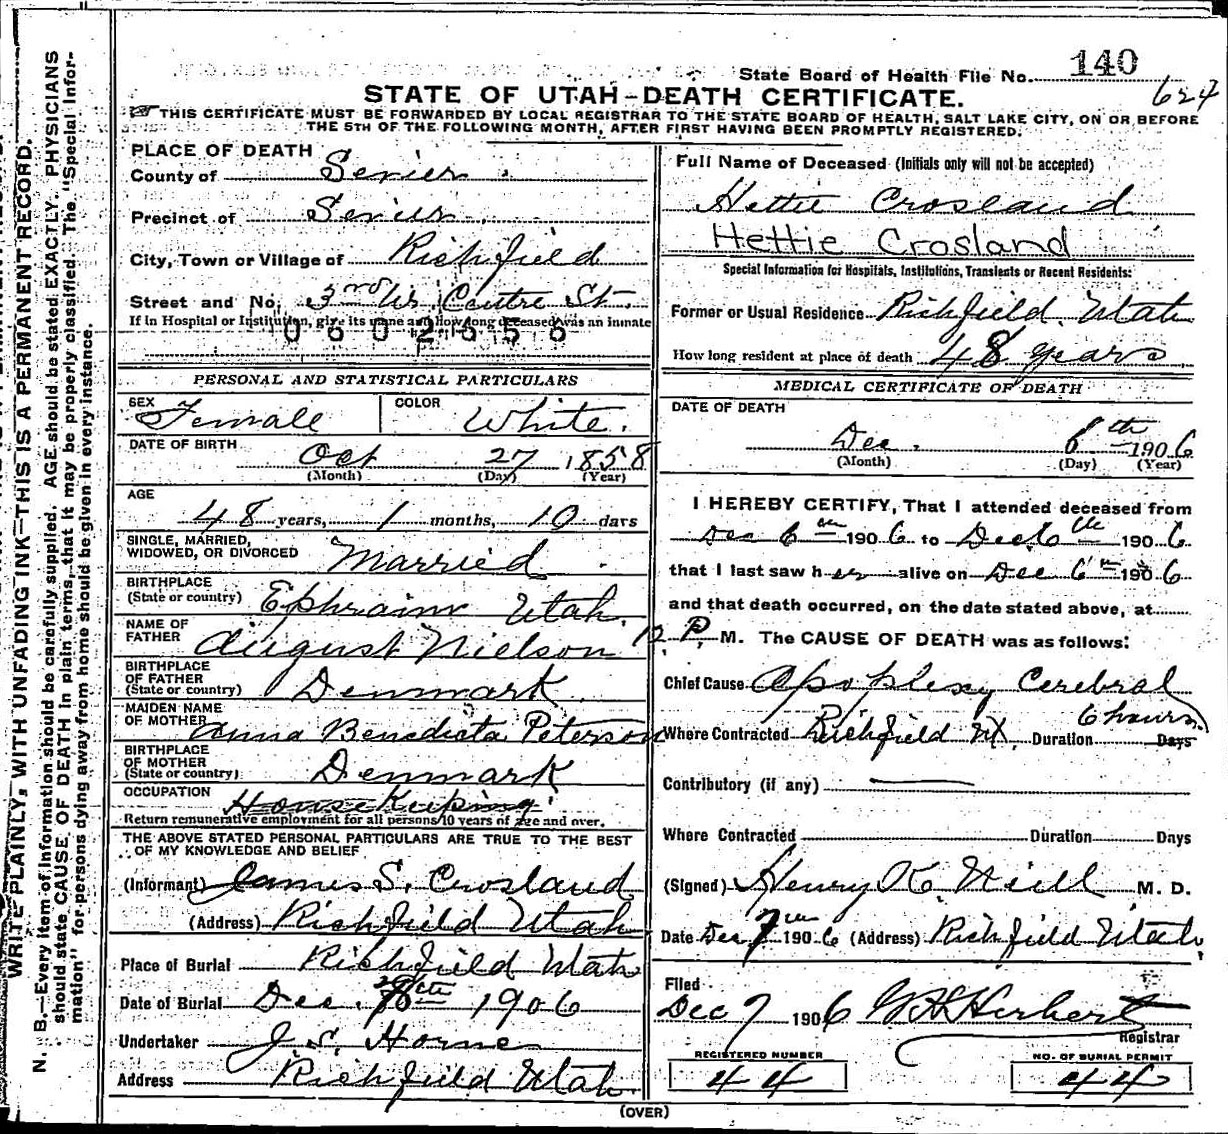 State Board of Health File No. 140
624
STATE OF UTAH—DEATH CERTIFICATE.
THIS CERTIFICATE MUST BE FORWARDED BY LOCAL REGISTRAR TO THE STATE BOARD OF HEALTH, SALT LAKE CITY, ON OR BEFORE
THE 5TH OF THE FOLLOWING MONTH, AFTER FIRST HAVING BEEN PROMPTLY REGISTERED.
WRITE PLAINLY, WITH UNFADING INK—THIS IS A PERMANENT RECORD.
N. B.—Every item of information should be carefully supplied. AGE should be stated EXACTLY. PHYSICIANS
should state CAUSE OF DEATH in plain terms, that it may be properly classified. The "Special Infor-
mation" for persons dying away from home should be given in every instance.
PLACE OF DEATH
County of Sevier
Precinct of Sevier
City, Town or Village of Richfield
Street and No. 3rd W Centre St.
If in Hospital or Institution, give its name and how long deceased was an inmate
0602656
PERSONAL AND STATISTICAL PARTICULARS
SEX Female COLOR White.
DATE OF BIRTH Oct 27 1858
(Month) (Day) (Year)
AGE
48 years, 1 months, 10 days
SINGLE, MARRIED,
WIDOWED, OR DIVORCED Married
BIRTHPLACE
(State or country) Ephraim Utah.
NAME OF
FATHER August Nielson
BIRTHPLACE
OF FATHER
(State or country) Denmark
MAIDEN NAME
OF MOTHER Anna Benedicta Peterson
BIRTHPLACE
OF MOTHER
(State or country) Denmark
OCCUPATION House Keeping
Return remunerative employment for all persons 10 years of age and over.
THE ABOVE STATED PERSONAL PARTICULARS ARE TRUE TO THE BEST
OF MY KNOWLEDGE AND BELIEF
(Informant) James S. Crosland
(Address) Richfield Utah
Place of Burial Richfield Utah
Date of Burial Dec. 8th 1906
Undertaker J. S. Horne
Address Richfield Utah.
Full Name of Deceased (Initials only will not be accepted)
Hettie Crosland
Hettie Crosland
Special Information for Hospitals, Institutions, Transients or Recent Residents:
Former or Usual Residence Richfield Utah
How long resident at place of death 48 years
MEDICAL CERTIFICATE OF DEATH
DATE OF DEATH
Dec. 6th 1906
(Month) (Day) (Year)
I HEREBY CERTIFY, That I attended deceased from
Dec 6th 1906 to Dec 6th 1906
that I last saw her alive on Dec 6th 1906
and that death occurred, on the date stated above, at
12 P. M. The CAUSE OF DEATH was as follows:
Chief Cause Apoplexy Cerebral
6 hours
Where Contracted Richfield Ut. Duration Days
Contributory (if any)
Where Contracted Duration Days
(Signed) Henry K Neill M. D.
Date Dec 7th 1906 (Address) Richfield Utah
Filed
Dec 7 1906 Herbert
Registrar
REGISTERED NUMBER
44
NO. OF BURIAL PERMIT
44
(OVER)